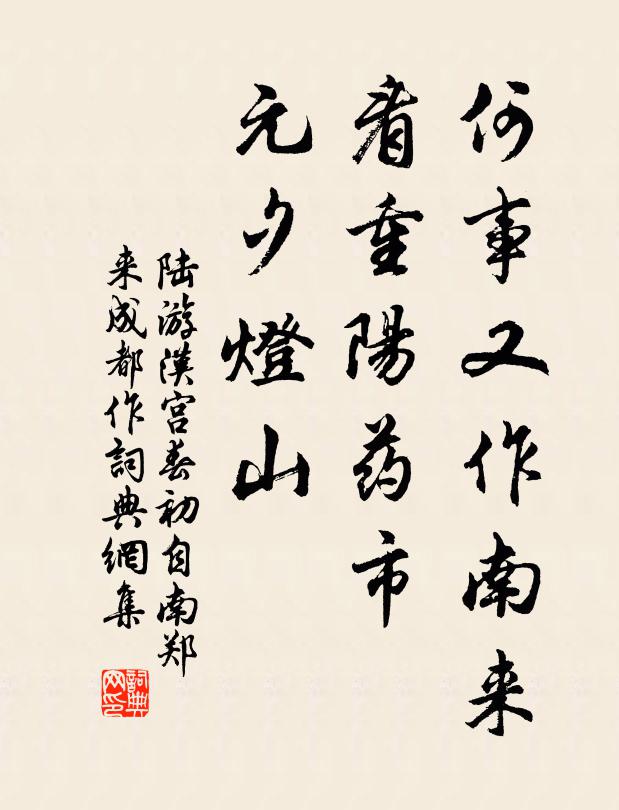 何事又作南来
看重陽药市
元夕燈山
陆游漢宫春初自南郑
来成都作詞典網集
詞典网印